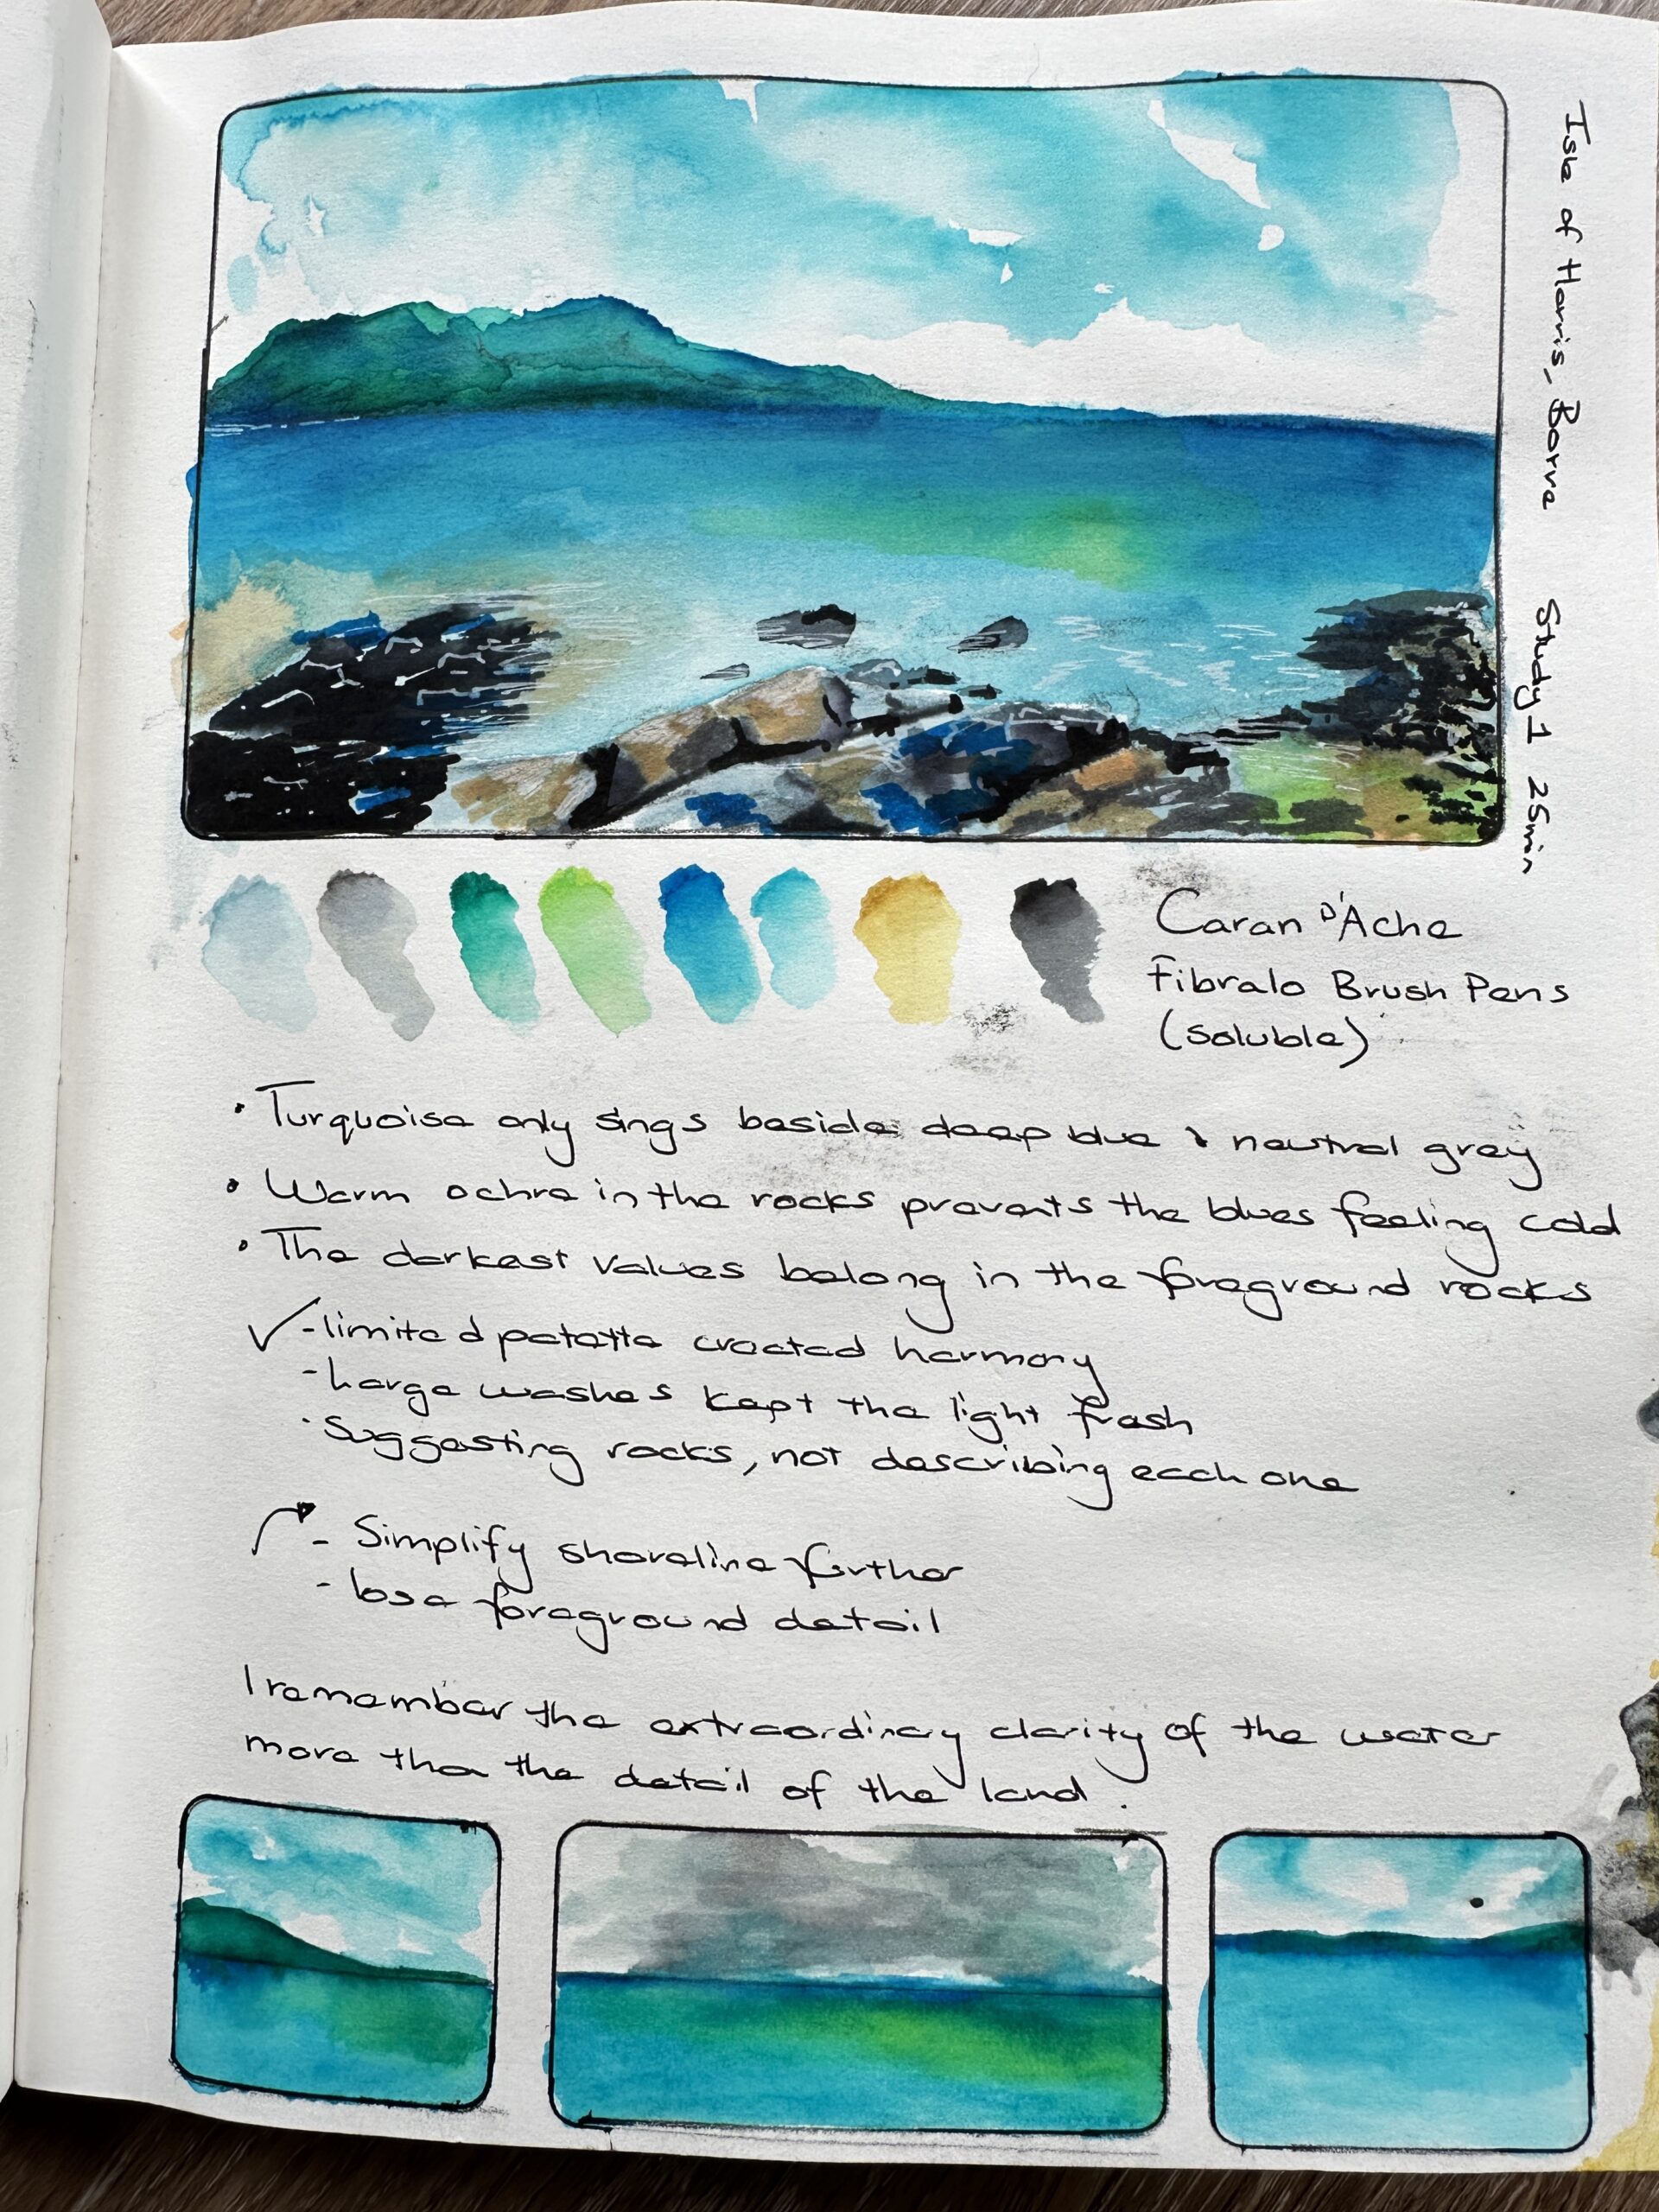 Isle of Harris, Borve Study 1 25min
Caran D'Ache
Fibralo Brush Pens
(soluble)
• Turquoise only sings beside deep blue & neutral grey
• Warm ochre in the rocks prevents the blues feeling cold
• The darkest values belong in the foreground rocks
✓ - limited palette created harmony
- large washes kept the light fresh
- Suggesting rocks, not describing each one
- Simplify shoreline further
- lose foreground detail
I remember the extraordinary clarity of the water
more than the detail of the land.